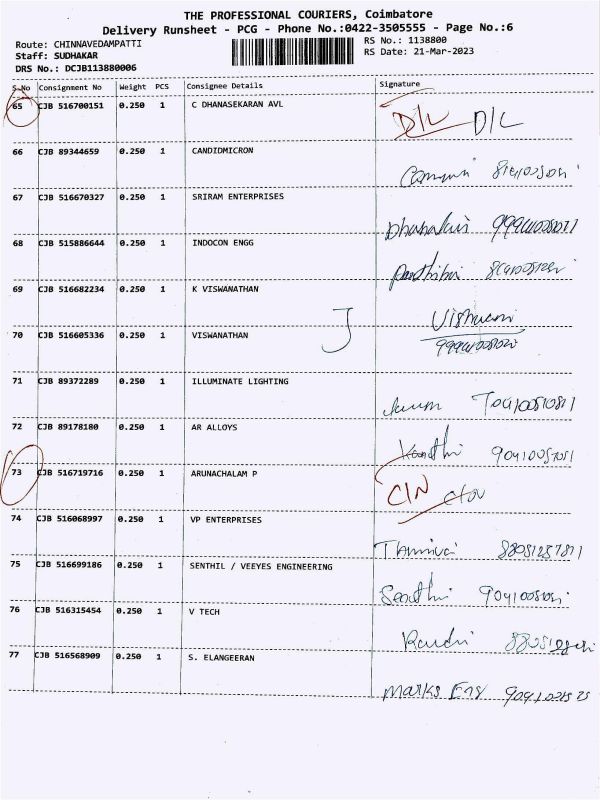 THE PROFESSIONAL COURIERS, Coimbatore
Delivery Runsheet - PCG - Phone No.:0422-3505555 - Page No.:6
Route: CHINNAVEDAMPATTI
Staff: SUDHAKAR
DRS No.: DCJB113880006
RS No.: 1138800
RS Date: 21-Mar-2023
S.No Consignment No Weight PCS Consignee Details Signature
65 CJB 516700151 0.250 1 C DHANASEKARAN AVL D/L D/L
66 CJB 89344659 0.250 1 CANDIDMICRON
67 CJB 516670327 0.250 1 SRIRAM ENTERPRISES
68 CJB 515886644 0.250 1 INDOCON ENGG
69 CJB 516682234 0.250 1 K VISWANATHAN
70 CJB 516605336 0.250 1 VISWANATHAN
71 CJB 89372289 0.250 1 ILLUMINATE LIGHTING
72 CJB 89178180 0.250 1 AR ALLOYS
73 CJB 516719716 0.250 1 ARUNACHALAM P C/N
74 CJB 516068997 0.250 1 VP ENTERPRISES
75 CJB 516699186 0.250 1 SENTHIL / VEEYES ENGINEERING
76 CJB 516315454 0.250 1 V TECH
77 CJB 516568909 0.250 1 S. ELANGEERAN
Marks Eng